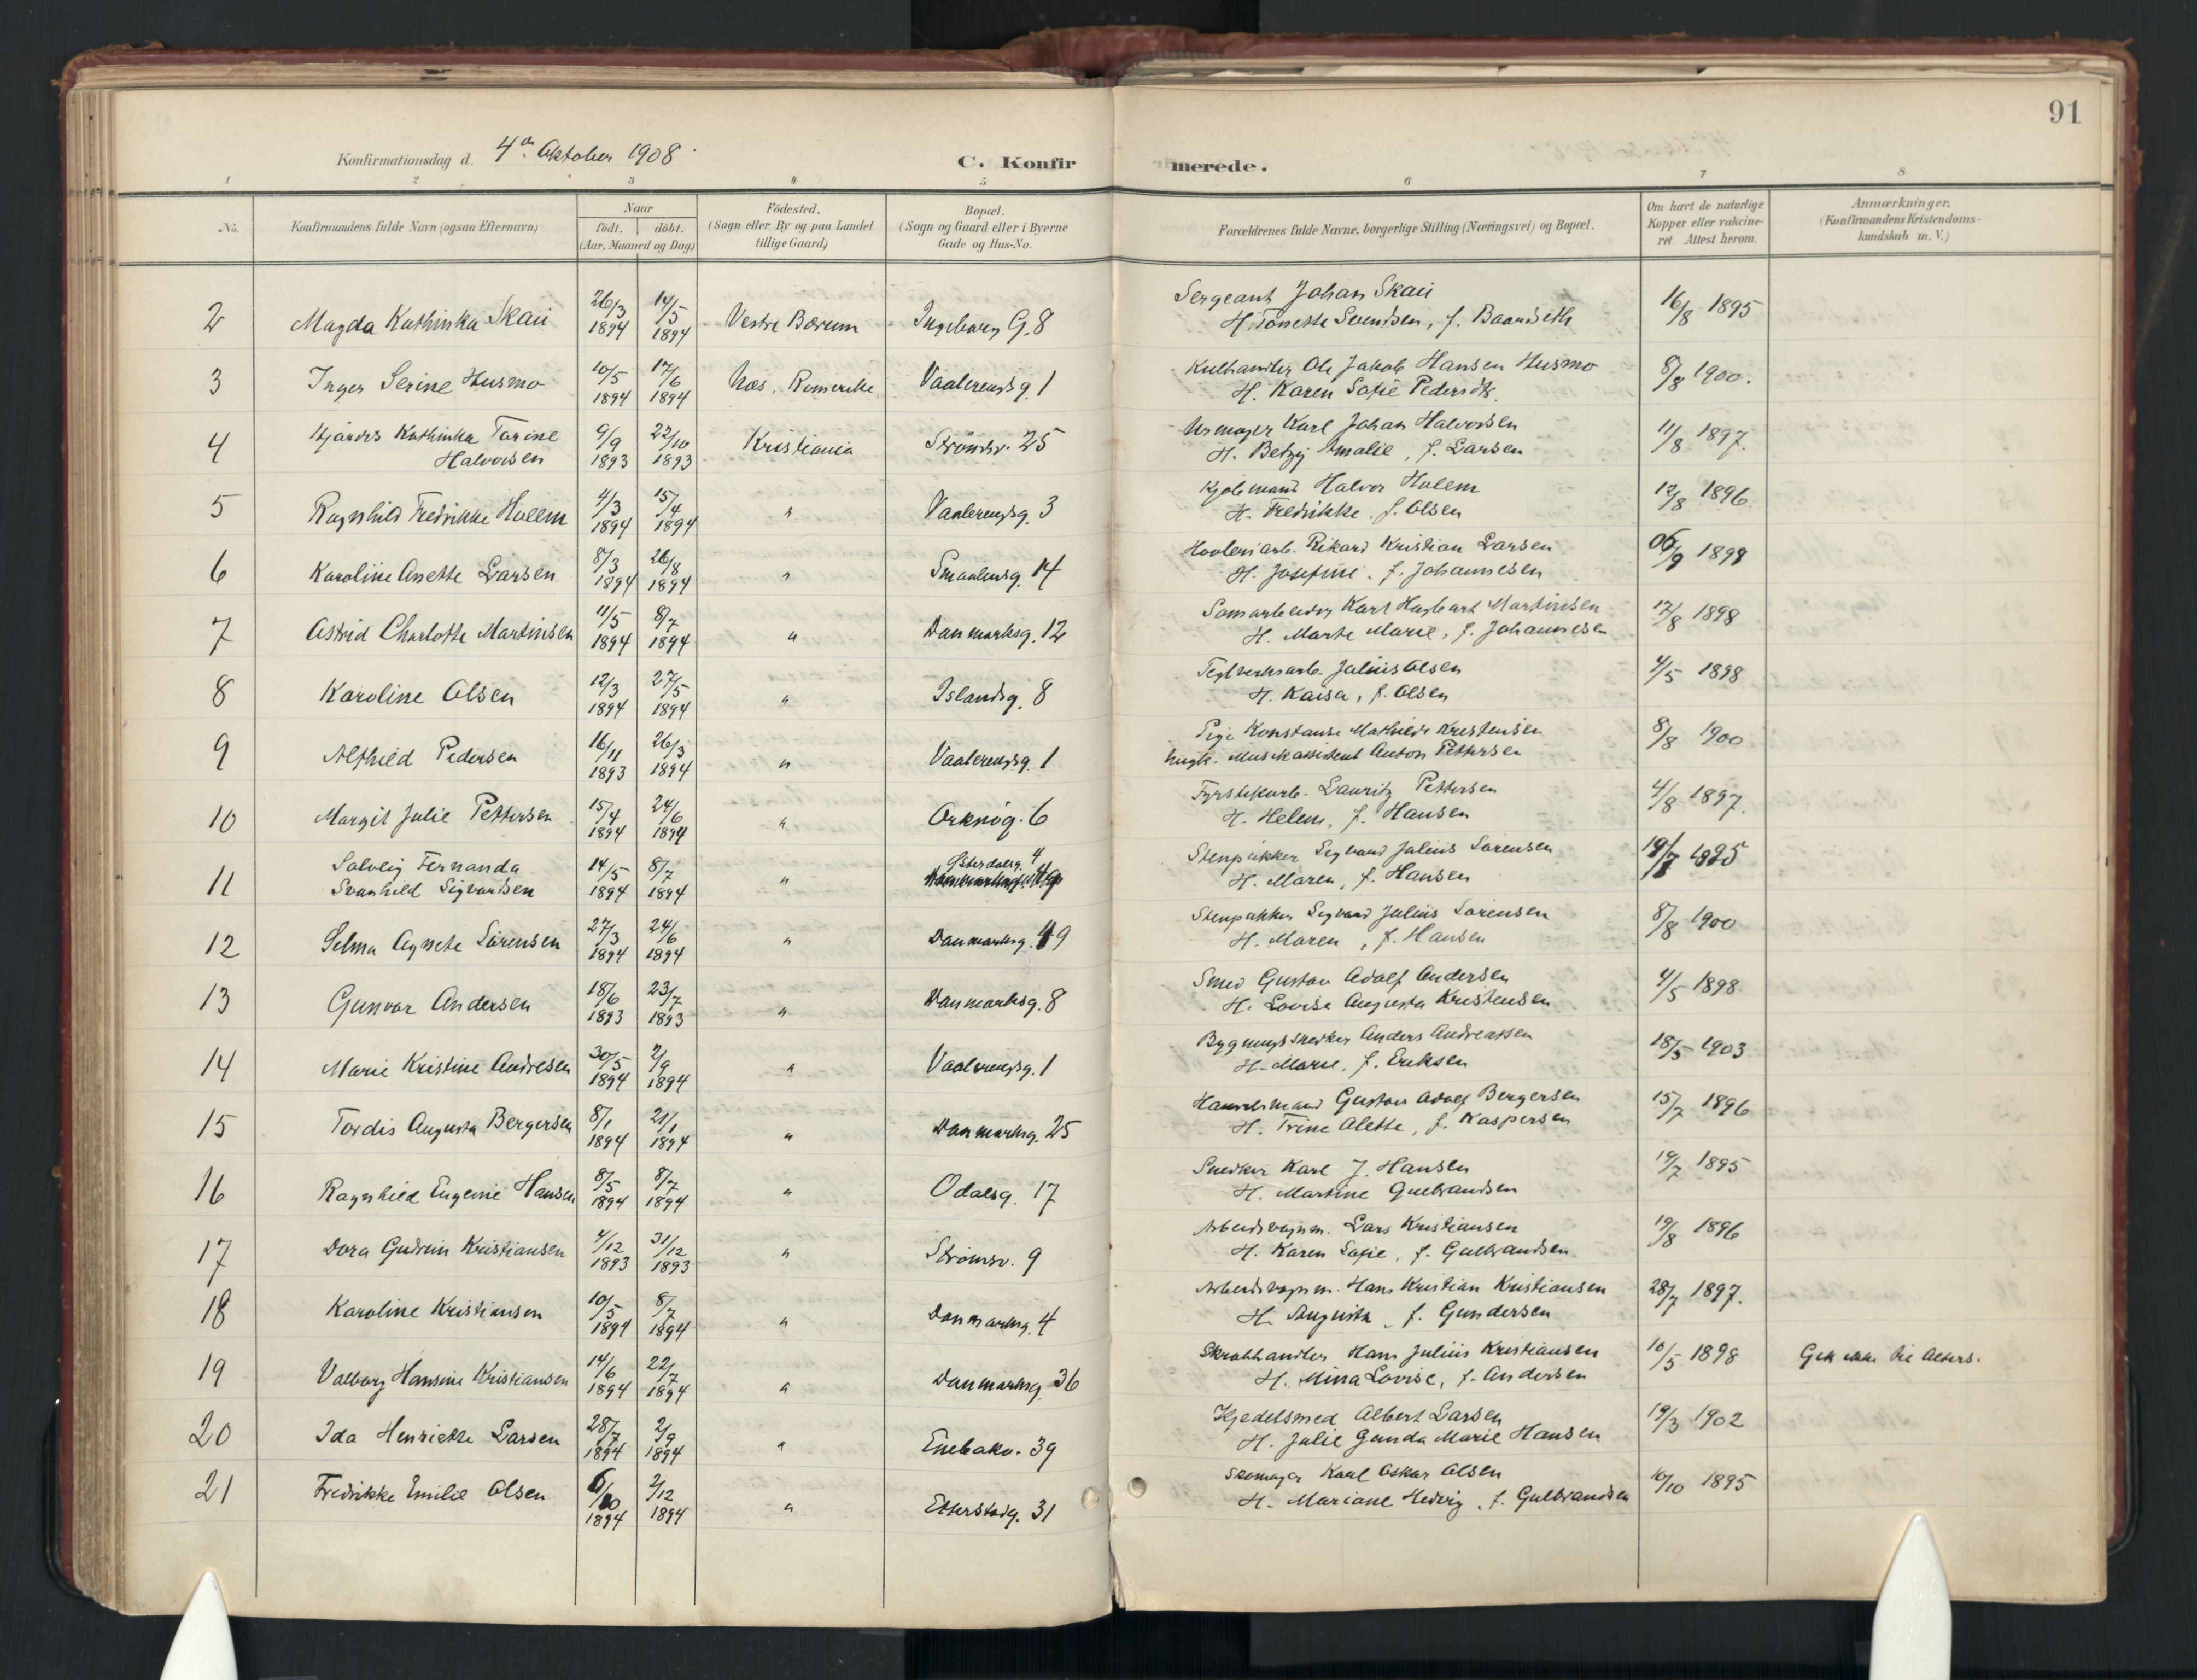 91
Konfirmationsdag d. 4de Oktober 1908.
C. Konfirmerede.
1 2 3 4 5 6 7 8
No.
Konfirmandens fulde Navn (ogsaa Efternavn)
Naar
født. døbt.
(Aar, Maaned og Dag)
Fødested.
(Sogn eller By og paa Landet
tillige Gaard)
Bopæl.
(Sogn og Gaard eller i Byerne
Gade og Hus-No.
Forældrenes fulde Navne, borgerlige Stilling (Næringsvei) og Bopæl.
Om havt de naturlige
Kopper eller vakcine-
ret. Attest herom.
Anmærkninger.
(Konfirmandens Kristendoms-
kundskab m. V.)
2 Magda Kathinka Skaii 26/3 1894 14/5 1894 Vestre Bærum Ingeborg G. 8
Sergeant Johan Skaii
H. Tonette Svendsen, f. 16/8 1895
3 Inger Serine Husmo 10/5 1894 17/6 1894 Næs, Romerike Vaalerengsg. 1
Kulhandler Ole Jakob Hansen Husmo
H. Karen Sofie Pedersdt. 8/8 1900.
4 Hjørdis Kathinka Torine
Halvorsen 9/9 1893 22/10 1893 Kristiania Strømsv. 25
Urmager Karl Johan Halvorsen
H. Betzy Amalie, f. Larsen 11/8 1897.
5 Ragnhild Fredrikke Holem 4/3 1894 15/4 1894 " Vaalerengsg. 3
Kjøbmand Halvor Holem
H. Fredrikke f. Olsen 12/8 1896.
6 Karoline Anette Larsen 8/3 1894 26/8 1894 " Smaalensg. 14
Høvleriarb. Rikard Kristian Larsen
H. Josefine, f. Johannesen 1898
7 Astrid Charlotte Martinsen 11/5 1894 8/7 1894 " Danmarksg. 12
Karl Hagbart Martinsen
H. Marte Marie, f. Johannesen 17/8 1898
8 Karoline Olsen 12/3 1894 27/5 1894 " Islandsg. 8
Teglverksarb. Julius Olsen
H. Kaisa, f. Olsen 4/5 1898
9 Alfhild Pedersen 16/11 1893 26/3 1894 " Vaalerengsg. 1
Pige Konstanse Mathilde Kristensen
Musikassistent Anton Pettersen 8/8 1900
10 Margit Julie Pettersen 15/4 1894 24/6 1894 " Orknøg. 6
Fyrstikarb. Lauritz Pettersen
H. Helene, f. Hansen 4/8 1897.
11 Solveig Fernanda
Svanhild Sigvartsen 14/5 1894 8/7 1894 " Østerdalsg. 4
Stenpukker Sigvard Julius Sørensen
H. Maren, f. Hansen 1895
12 Selma Agnete Sørensen 27/3 1894 24/6 1894 " Danmarksg. 49
Stenpukker Sigvard Julius Sørensen
H. Maren, f. Hansen 8/8 1900
13 Gunvor Andersen 18/6 1893 23/7 1893 " Danmarksg. 8
Smed Gustav Adolf Andersen
H. Lovise Augusta Kristensen 4/5 1898
14 Marie Kristine Andresen 30/5 1894 2/9 1894 " Vaalerengsg. 1
Bygningssnedker Anders Andreassen
H. Marie, f. Eriksen 18/5 1903.
15 Tordis Augusta Bergersen 8/1 1894 21/1 1894 " Danmarksg. 25
Handelsmand Gustav Adolf Bergersen
H. Trine Alette, f. Kaspersen 15/7 1896
16 Ragnhild Eugenie Hansen 8/5 1894 8/7 1894 " Odalsg. 17
Snedker Karl J. Hansen
H. Martine Gulbrandsen 19/7 1895
17 Dora Gudrun Kristiansen 4/12 1893 31/12 1893 " Strømsv. 9
Arbeidsvognm. Lars Kristiansen
H. Karen Sofie, f. Gulbrandsen 19/8 1896
18 Karoline Kristiansen 10/5 1894 8/7 1894 " Danmarksg. 4
Arbeidsvognm. Hans Kristian Kristiansen
H. Augusta, f. Gundersen 28/7 1897.
19 Valborg Hansine Kristiansen 14/6 1894 22/7 1894 " Danmarksg. 36
Skrabhandler Hans Julius Kristiansen
H. Mina Lovise, f. Andersen 10/5 1898 Gik ikke til Alters.
20 Ida Henriette Larsen 28/7 1894 2/9 1894 " Enebakv. 39
Kjedelsmed Albert Larsen
H. Julie Gunda Marie Hansen 19/3 1902
21 Fredrikke Emilie Olsen 6/10 1894 2/12 1894 " Etterstadg. 31
Skomager Karl Oskar Olsen
H. Mariane Hedvig, f. Gulbrandsen 10/10 1895